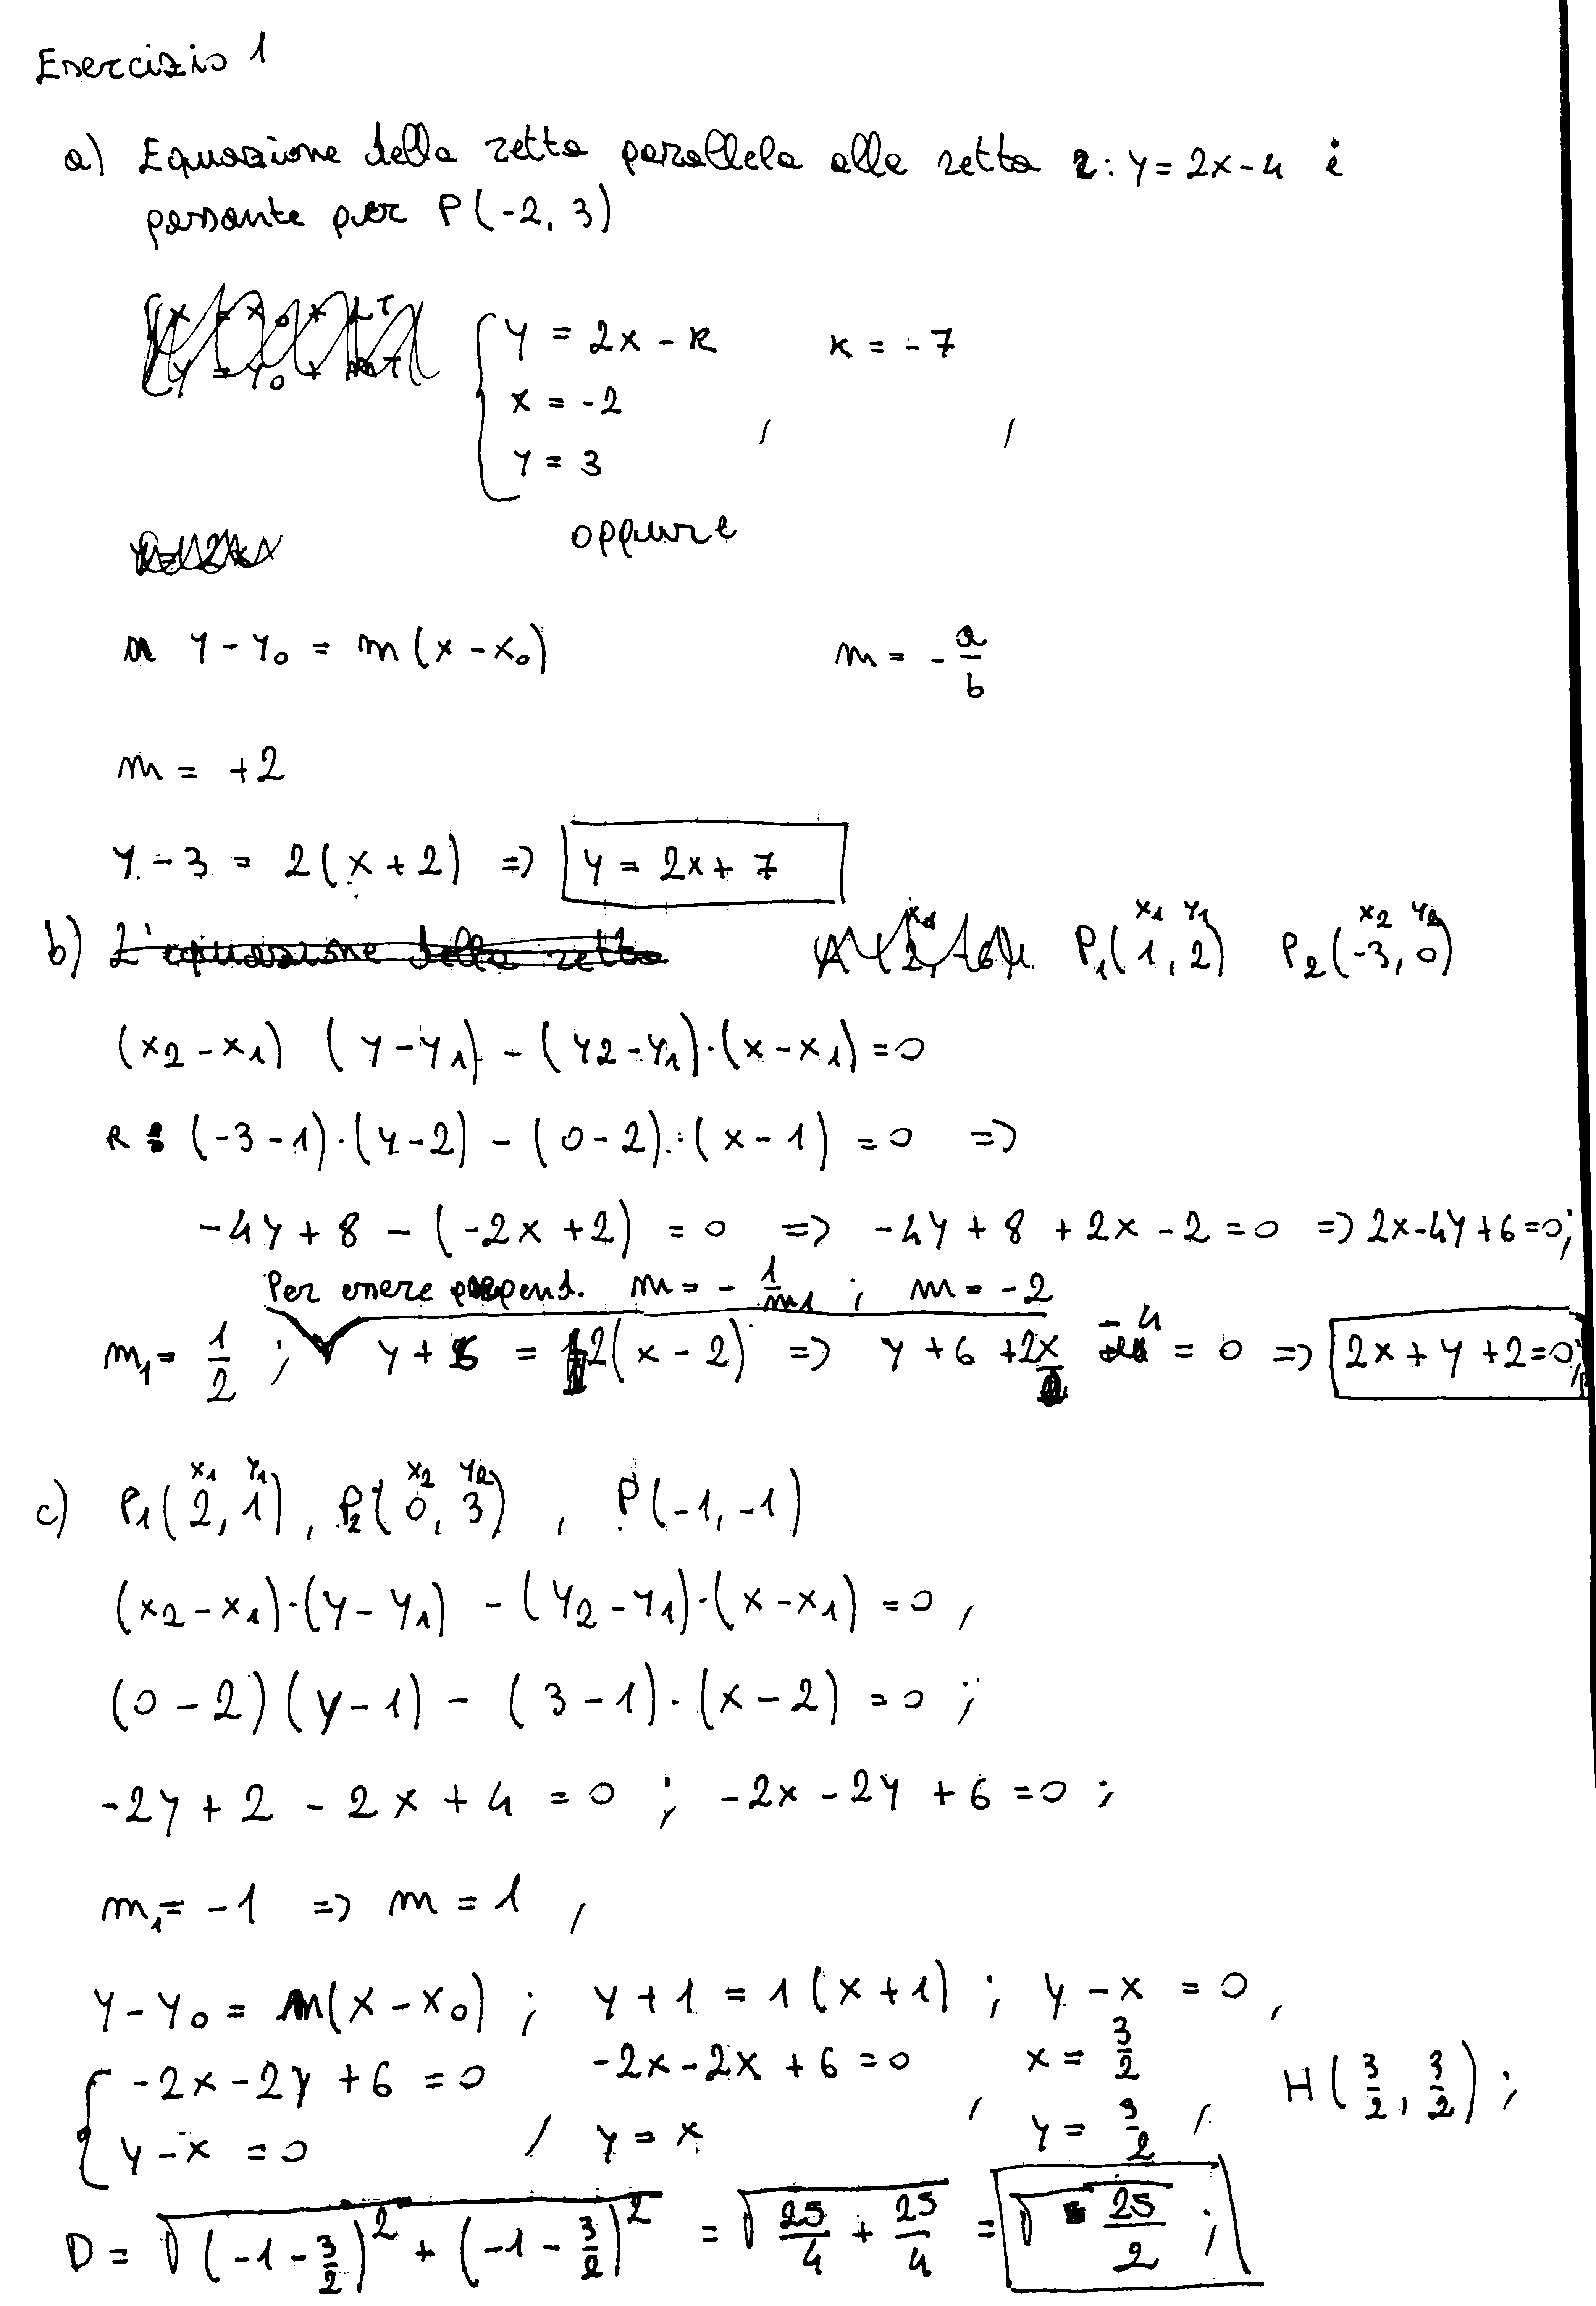 Esercizio 1
a) Equazione della retta parallela alla retta r: y = 2x - 4 e
passante per P(-2, 3)
{ y = 2x - k    k = -7
x = -2
y = 3 , ,
oppure
y - y0 = m(x - x0)    m = - a/b
m = +2
y - 3 = 2(x + 2) => y = 2x + 7
b) P1(1, 2)  P2(-3, 0)  x1 y1  x2 y2
(x2 - x1) (y - y1) - (y2 - y1)·(x - x1) = 0
R: (-3 - 1)·(y - 2) - (0 - 2)·(x - 1) = 0 =>
-4y + 8 - (-2x + 2) = 0 => -4y + 8 + 2x - 2 = 0 => 2x - 4y + 6 = 0;
Per essere perpend. m = - 1/m1 ; m = -2
m1 = 1/2 ; y + 6 = -2(x - 2) => y + 6 + 2x - 4 = 0 => 2x + y + 2 = 0;
x1 y1  x2 y2
c) P1(2, 1), P2(0, 3) , P(-1, -1)
(x2 - x1)·(y - y1) - (y2 - y1)·(x - x1) = 0 ,
(0 - 2)(y - 1) - (3 - 1)·(x - 2) = 0 ;
-2y + 2 - 2x + 4 = 0 ; -2x - 2y + 6 = 0 ;
m1 = -1 => m = 1 ,
y - y0 = m(x - x0) ; y + 1 = 1(x + 1) ; y - x = 0 ,
{ -2x - 2y + 6 = 0    -2x - 2x + 6 = 0    x = 3/2    H(3/2, 3/2) ;
y - x = 0 , y = x , y = 3/2 ,
D = √(-1 - 3/2)² + (-1 - 3/2)² = √25/4 + 25/4 = √25/2 ;